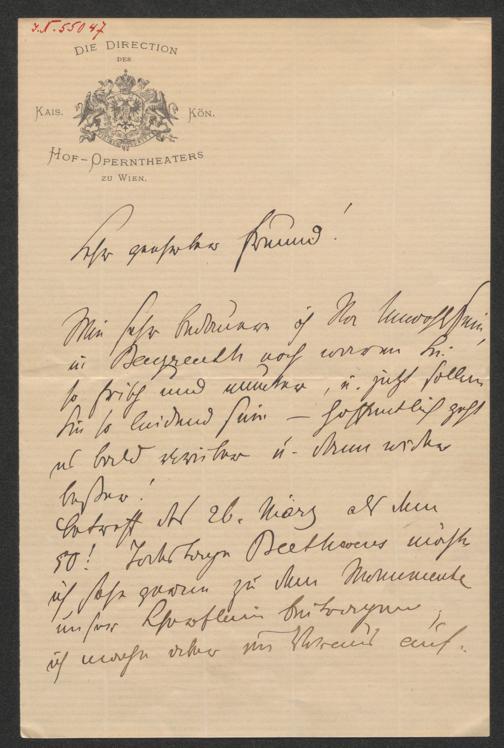 I.N. 55047
DIE DIRECTION
DES
KAIS. KÖN.
HOF-OPERNTHEATERS
ZU WIEN.
Sehr geehrter Freund!
Wie sehr bedauere ich Ihr Unwohlsein,
in Bayreuth noch waren Sie
so frisch und munter, u. jetzt sollen
Sie so leidend sein — hoffentlich geht
es bald vorüber u. dann wieder
besser!
Betreff des 26. März als dem
50! Todestage Beethovens möchte
ich sehr gerne zu dem Monumente
unser Scherflein beitragen,
ich mache aber im Voraus auf-